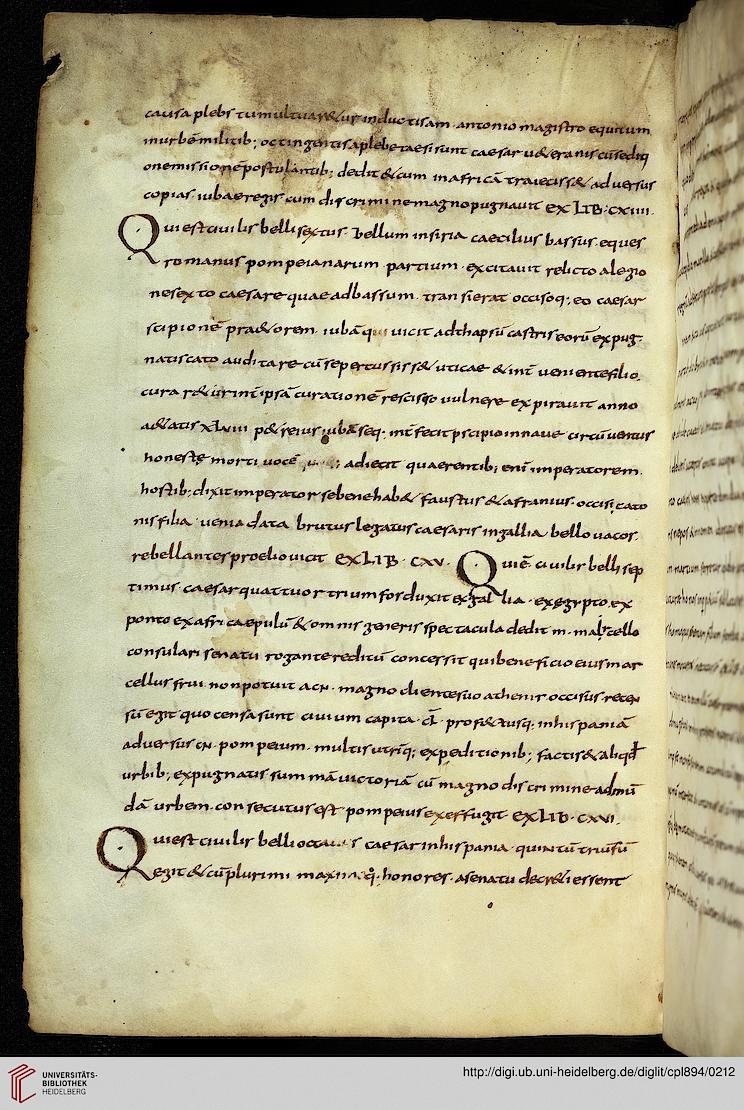 causa plebs tumultuar&ur inductis a m. antonio magistro equitum
in urbē militib; octingenti sa plebe taesi sunt caesar u&eranis cū sediti
one missionē postulantib; dedit & cum in africā traiecisset& aduersus
copias iubae regis cum discrimine magno pugnauit EX LIB · CXIIII.
Qui est ciuilis belli sextus · bellum in siria caecilius bassus eques
romanus pompeianarum partium · excitauit relicto a legio
ne sexto caesare quae ad bassum transierat occisoq; eo caesar
scipionē pra&orem · iubāq uicit ad thapsū castris eorū expug
natis cato audita re cū se percussiss& uticae & int̄ueniente filio
curar&ur int̄ ipsā curationē rescisso uulnere expirauit anno
a&atis XLVIII p&reius iubā seq. int̄fecit p scipio in naue circūuentus
honestę morti uocē adiecit quaerentib; eni imperatorem
hostib; dixit imperator se bene hab& faustus & afranius occisi cato
nis filia uenia data brutus legatus caesaris in gallia bellouacos
rebellantes proelio uicit EX LIB · CXV · Qui ē ciuilis belli sep
timus · caesar quattuor triumfos duxit ex gallia · ex egypto ex
ponto ex africa epulū & omnis generis spectacula dedit m · marcello
consulari senatu rogante reditū concessit qui beneficio eius mar
cellus frui non potuit a cn · magno cliente suo athenis occisus recen
sū egit quo censa sunt ciuium capita · CL prof&tusq; in hispaniā
aduersus cn · pompeium · multis utriq; expeditionib; factis & aliqd̄
urbib; expugnatis summā uictoriā cū magno discrimine ad mū
dā urbem · consecutus est pompeius ex effugit EX LIB · CXVI.
Qui est ciuilis belli octauus caesar in hispania · quintū triūfū
egit & cū plurimi maximiq; honores · a senatu decr&i essent
UNIVERSITÄTS-
BIBLIOTHEK
HEIDELBERG
http://digi.ub.uni-heidelberg.de/diglit/cpl894/0212